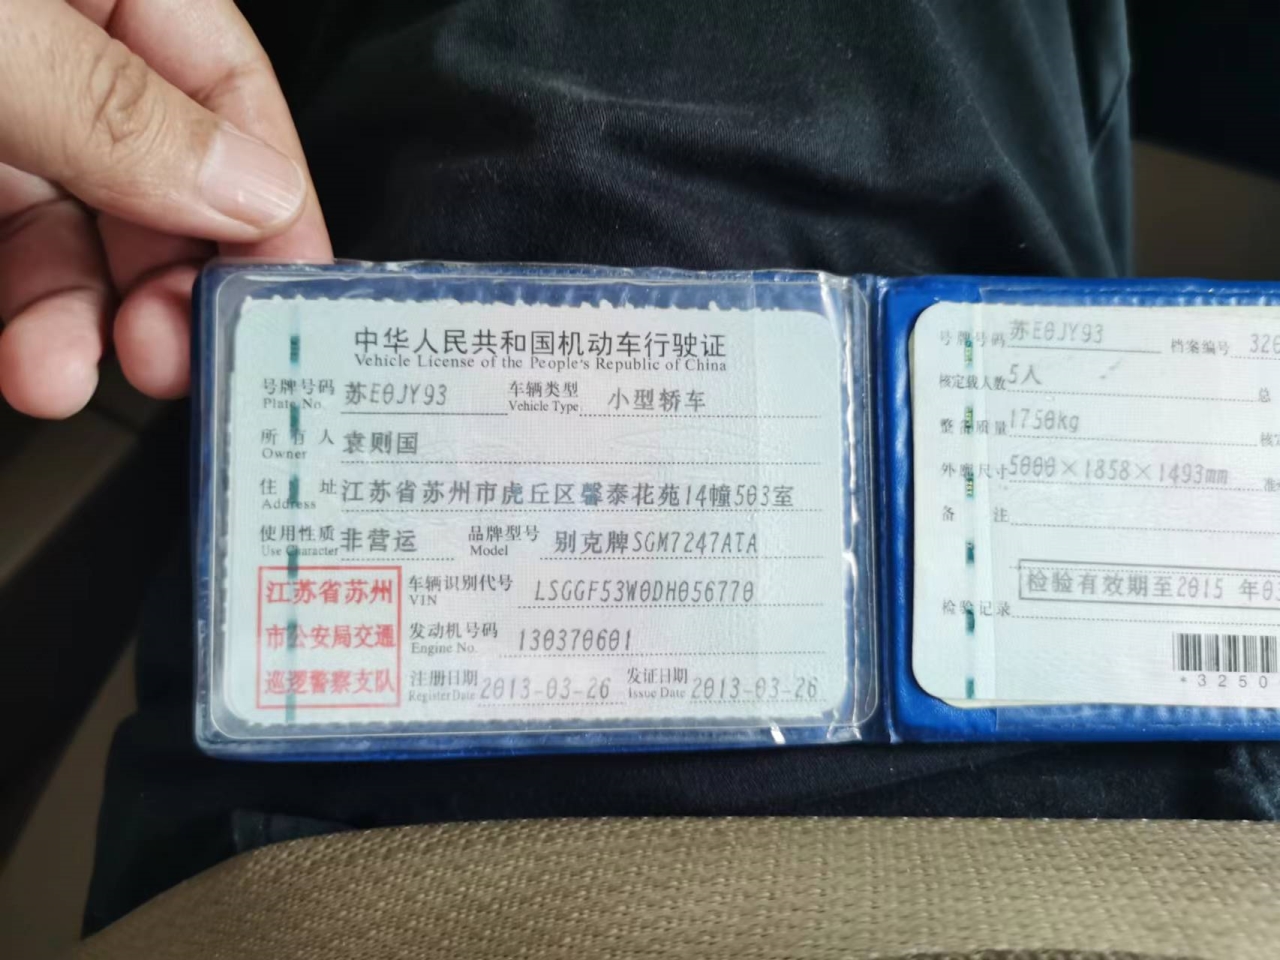 中华人民共和国机动车行驶证
Vehicle License of the People's Republic of China
号牌号码 苏E0JY93 车辆类型 小型轿车
Plate No. Vehicle Type
所有人 袁则国
Owner
住址 江苏省苏州市虎丘区馨泰花苑14幢503室
Address
使用性质 非营运 品牌型号 别克牌SGM7247ATA
Use Character Model
江苏省苏州
市公安局交通
巡逻警察支队
车辆识别代号 LSGGF53W0DH056770
VIN
发动机号码 130370601
Engine No.
注册日期 2013-03-26 发证日期 2013-03-26
Register Date Issue Date
号牌号码 苏E0JY93 档案编号 320
核定载人数 5人 总
整备质量 1750kg 核
外廓尺寸 5000×1858×1493mm 准
备注
检验有效期至2015 年03
检验记录
*3250